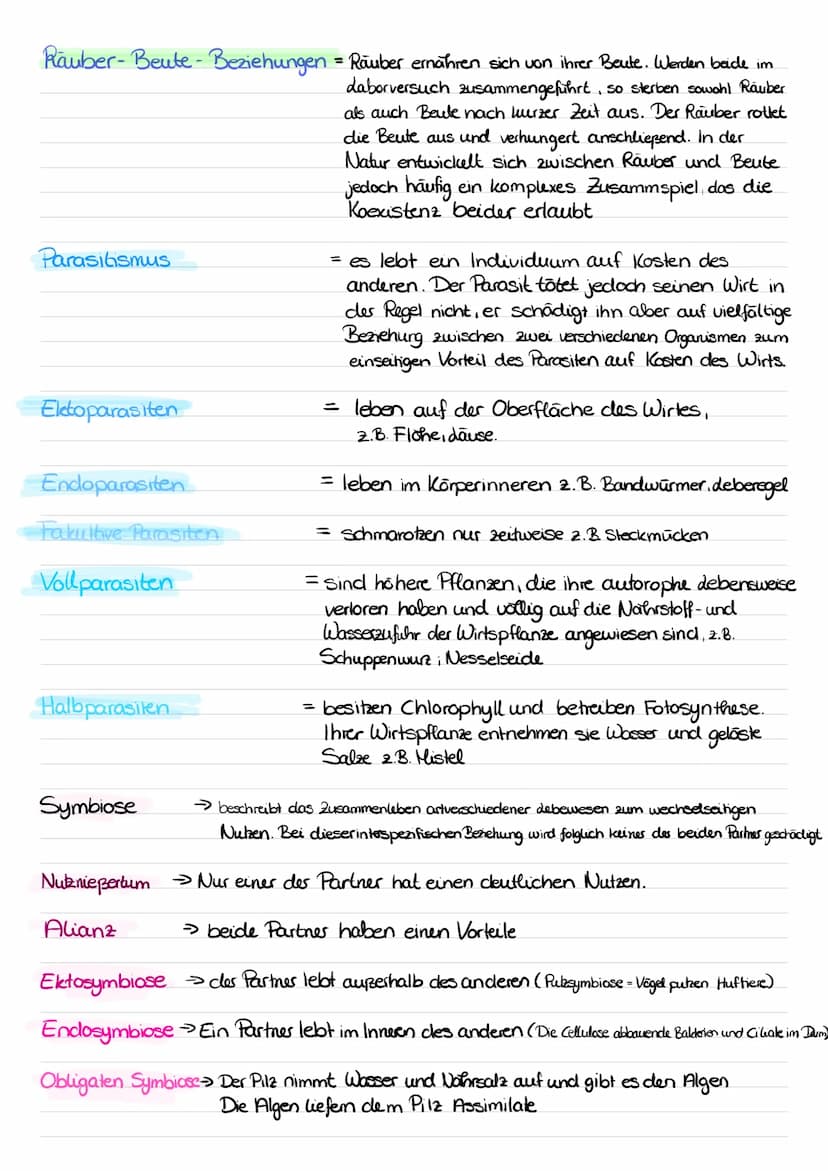 Räuber-Beute-Beziehungen = Räuber ernähren sich von ihrer Beute. Werden beide im
Laborversuch zusammengeführt, so sterben sowohl Räuber
als auch Beute nach kurzer Zeit aus. Der Räuber rottet
die Beute aus und verhungert anschließend. In der
Natur entwickelt sich zwischen Räuber und Beute
jedoch häufig ein komplexes Zusammspiel, das die
Koexistenz beider erlaubt
Parasitismus = es lebt ein Individuum auf Kosten des
anderen. Der Parasit tötet jedoch seinen Wirt in
der Regel nicht, er schädigt ihn aber auf vielfältige
Beziehung zwischen zwei verschiedenen Organismen zum
einseitigen Vorteil des Parasiten auf Kosten des Wirts.
Ektoparasiten = leben auf der Oberfläche des Wirtes,
z.B. Flöhe, Läuse.
Endoparasiten = leben im Körperinneren z.B. Bandwürmer, Leberegel
Fakultive Parasiten = schmarotzen nur zeitweise z.B Steckmücken
Vollparasiten = sind höhere Pflanzen, die ihre autorophe Lebensweise
verloren haben und völlig auf die Nährstoff- und
Wasserzufuhr der Wirtspflanze angewiesen sind, z.B.
Schuppenwurz; Nesselseide
Halbparasiten = besitzen Chlorophyll und betreiben Fotosynthese.
Ihrer Wirtspflanze entnehmen sie Wasser und gelöste
Salze z.B. Mistel
Symbiose → beschreibt das Zusammenleben artverschiedener Lebewesen zum wechselseitigen
Nutzen. Bei dieser interspezifischen Beziehung wird folglich keiner der beiden Partner geschädigt
Nutznießertum → Nur einer der Partner hat einen deutlichen Nutzen.
Alianz → beide Partner haben einen Vorteile
Ektosymbiose → der Partner lebt außerhalb des anderen (Putzsymbiose = Vögel putzen Huftiere)
Endosymbiose → Ein Partner lebt im Inneen des anderen (Die Cellulose abbauende Bakterien und Ciliate im Darm)
Obligaten Symbiose → Der Pilz nimmt Wasser und Nährsalz auf und gibt es den Algen
Die Algen liefern dem Pilz Assimilate